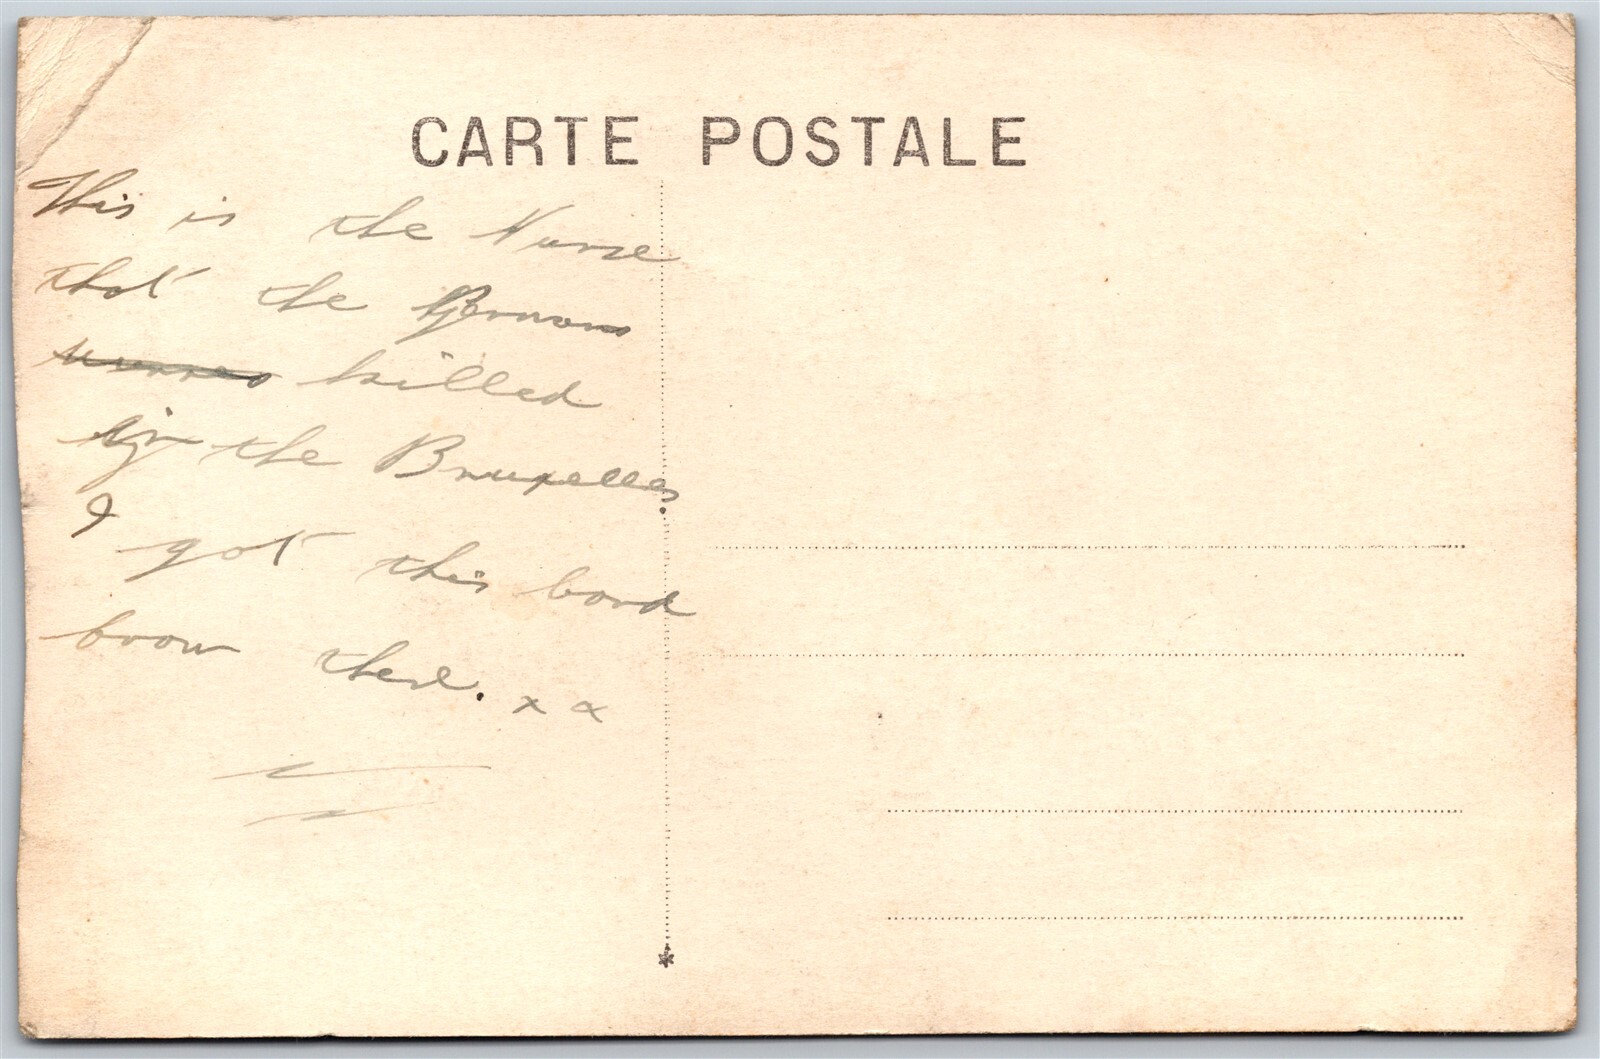 CARTE POSTALE
This is the Nurse
that the Germans
killed
in the Bruxelles.
I got this card
from there. x x